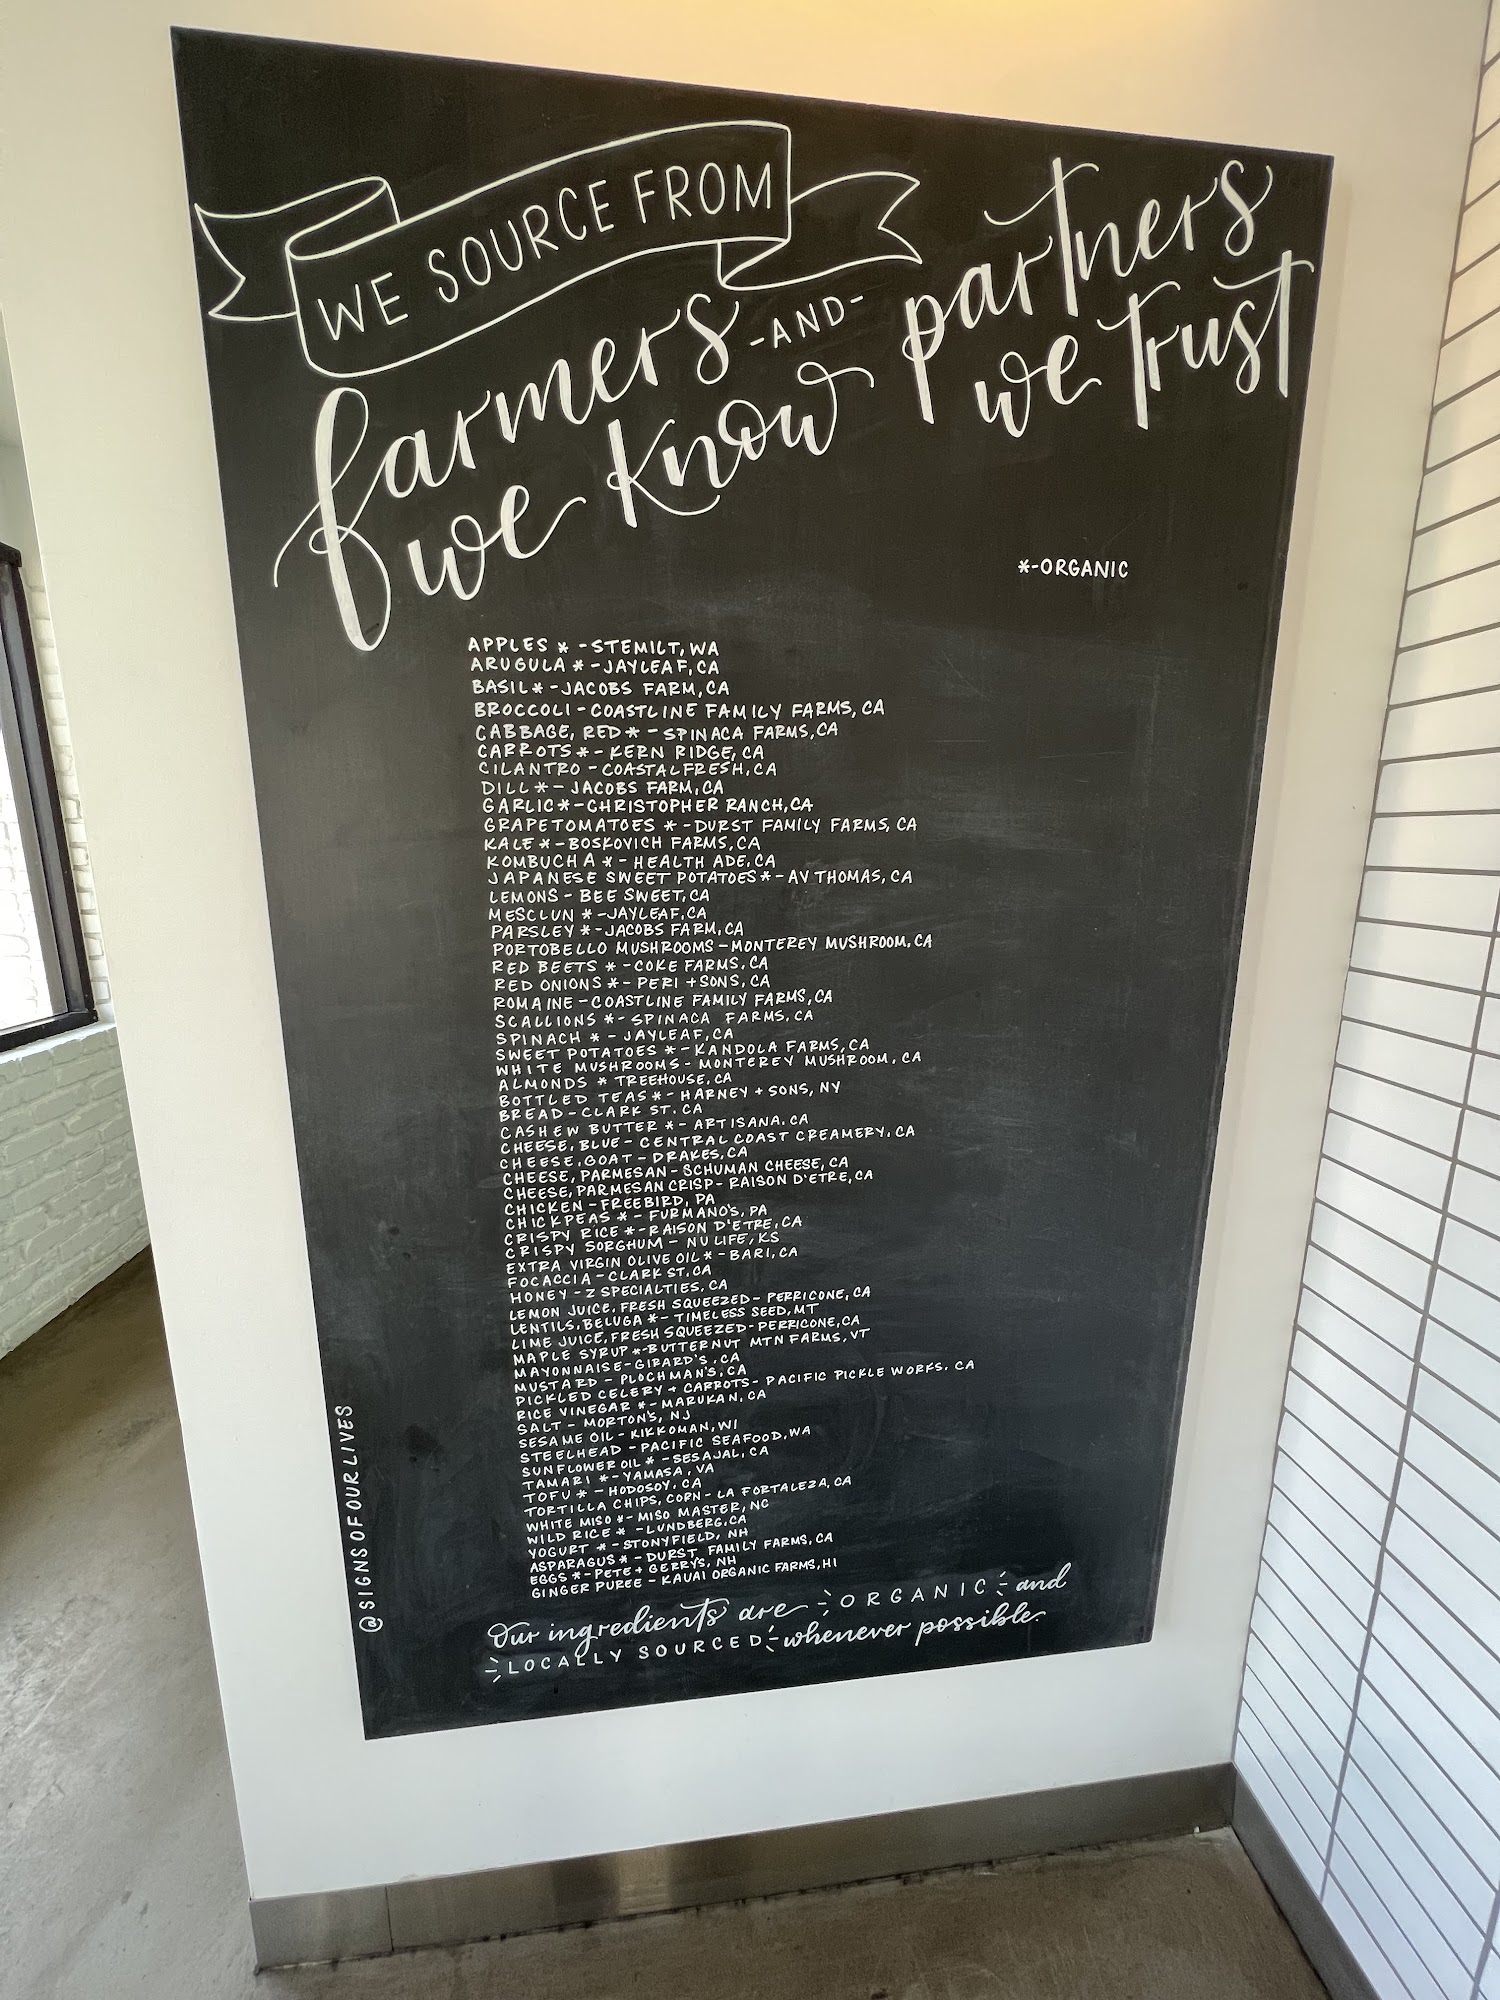 WE SOURCE FROM
farmers -AND- partners
we know we trust
*-ORGANIC
APPLES * -STEMILT, WA
ARUGULA *-JAYLEAF, CA
BASIL*-JACOBS FARM, CA
BROCCOLI-COASTLINE FAMILY FARMS, CA
CABBAGE, RED*-SPINACA FARMS, CA
CARROTS*-KERN RIDGE, CA
CILANTRO-COASTALFRESH, CA
DILL*-JACOBS FARM, CA
GARLIC*-CHRISTOPHER RANCH, CA
GRAPETOMATOES *-DURST FAMILY FARMS, CA
KALE*-BOSKOVICH FARMS, CA
KOMBUCHA*-HEALTH ADE, CA
JAPANESE SWEET POTATOES*-AV THOMAS, CA
LEMONS-BEE SWEET, CA
MESCLUN *-JAYLEAF, CA
PARSLEY *-JACOBS FARM, CA
PORTOBELLO MUSHROOMS-MONTEREY MUSHROOM, CA
RED BEETS *-COKE FARMS, CA
RED ONIONS *-PERI +SONS, CA
ROMAINE-COASTLINE FAMILY FARMS, CA
SCALLIONS *-SPINACA FARMS, CA
SPINACH *-JAYLEAF, CA
SWEET POTATOES *-KANDOLA FARMS, CA
WHITE MUSHROOMS-MONTEREY MUSHROOM, CA
ALMONDS * TREEHOUSE, CA
BOTTLED TEAS*-HARNEY + SONS, NY
BREAD-CLARK ST. CA
CASHEW BUTTER *-ARTISANA. CA
CHEESE, BLUE-CENTRAL COAST CREAMERY, CA
CHEESE, GOAT-DRAKES, CA
CHEESE, PARMESAN-SCHUMAN CHEESE, CA
CHEESE, PARMESAN CRISP-RAISON D'ETRE, CA
CHICKEN-FREEBIRD, PA
CHICKPEAS *-FURMANO'S, PA
CRISPY RICE*-RAISON D'ETRE, CA
CRISPY SORGHUM-NU LIFE, KS
EXTRA VIRGIN OLIVE OIL*-BARI, CA
FOCACCIA-CLARK ST. CA
HONEY-Z SPECIALTIES, CA
LEMON JUICE, FRESH SQUEEZED-PERRICONE, CA
LENTILS, BELUGA *-TIMELESS SEED, MT
LIME JUICE, FRESH SQUEEZED-PERRICONE, CA
MAPLE SYRUP *-BUTTERNUT MTN FARMS, VT
MAYONNAISE-GIRARD'S, CA
MUSTARD-PLOCHMAN'S, CA
PICKLED CELERY + CARROTS-PACIFIC PICKLE WORKS. CA
RICE VINEGAR *-MARUKAN, CA
SALT-MORTON'S, NJ
SESAME OIL-KIKKOMAN, WI
STEELHEAD-PACIFIC SEAFOOD, WA
SUNFLOWER OIL *-SESAJAL, CA
TAMARI *-YAMASA, VA
TOFU *-HODOSOY, CA
TORTILLA CHIPS, CORN-LA FORTALEZA, CA
WHITE MISO *-MISO MASTER, NC
WILD RICE * -LUNDBERG, CA
YOGURT *-STONYFIELD, NH
ASPARAGUS *-DURST FAMILY FARMS, CA
EGGS *-PETE + GERRYS, NH
GINGER PUREE-KAUAI ORGANIC FARMS, HI
Our ingredients are ORGANIC and
LOCALLY SOURCED whenever possible.
@SIGNSOFOURLIVES